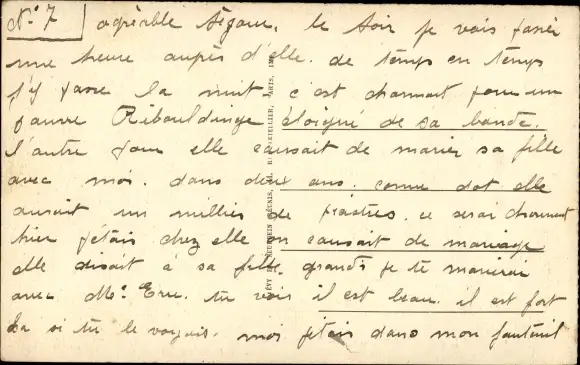 N° 7 agréable séjour, le soir je vais passer
une heure auprès d'elle. de temps en temps
j'y passe la nuit, c'est charmant pour un
pauvre Ribouldinge éloigné de sa bande.
l'autre jour elle causait de marier sa fille
avec moi. dans deux ans. comme dot elle
aurait un millier de piastres. ce serai charmant
hier j'étais chez elle on causait de mariage
elle disait à sa fille. grande je te marierai
avec Mo. tu vois il est beau. il est fort
si tu le voyais. moi j'étais dans mon fauteuil
PARIS,